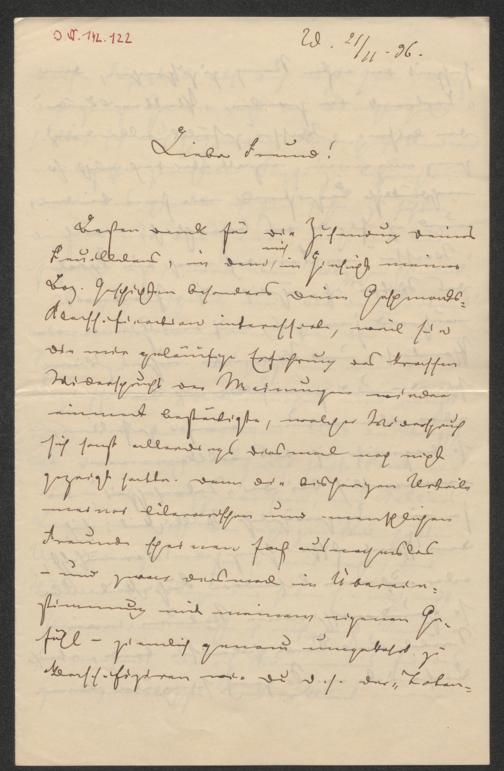 J.N. 142.122
W. 21/11.-96.
Lieber Freund!
Besten Dank für die Zusendung deines
Feuilletons, in dem mich, in Hinsicht meiner
Geschichten besonders deine Geschmacks-
Klassifikation interessierte, weil sie
die mir geläufige Erfahrung des krassen
Widerspruchs der Meinungen wieder
einmal bestätigte, welcher Widerspruch
sich sonst allerdings diesmal noch nicht
gezeigt hatte. Denn die bisherigen Urteile
meiner literarischen und menschlichen
Freunde scheinen fast ausnahmslos
– und zwar diesmal in Überein-
stimmung mit meinem eigenen Ge-
fühl – ziemlich genau umgekehrt zu
klassifizieren wie du d.h. der „Toten-